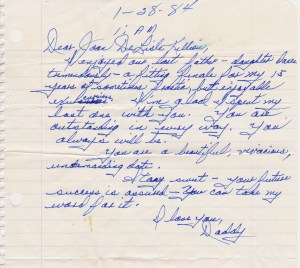 1-28-84
1 AM
Dear Joan DeLisle Killian,
I enjoyed our last father-daughter dance
tremendously - a fitting finale for my 15
years of sometimes hectic, but enjoyable
I'm glad I spent my
last one with you. You are
outstanding in every way. You
always will be.
You are a beautiful, vivacious,
understanding date.
Stay sweet - your future
success is assured - you can take my
word for it
I love you,
Daddy